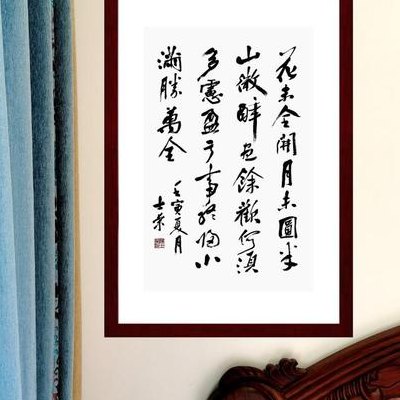 花未全開月未圓半
山微醉尽餘歡何須
多慮盈亏事終歸小
滿勝萬全
壬寅夏月
士榮